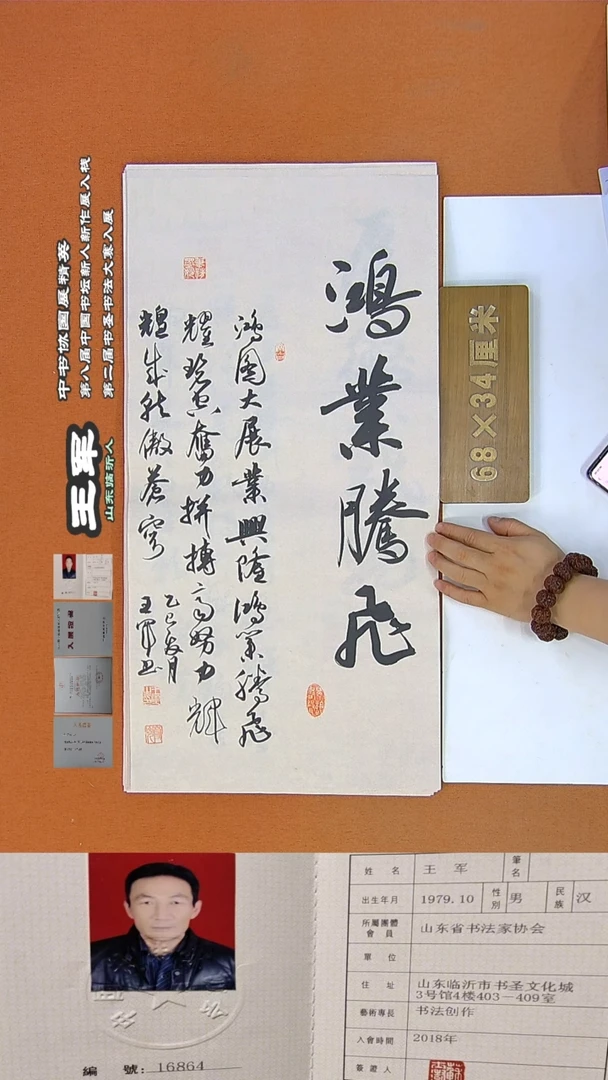 中书协国展精英
第八届中国书坛新人新作展入展
第二届书圣书法大赛入展
王军
山东临沂人
鸿業騰飛
鸿图大展業興隆鸿業騰飛
耀碧空奮力拼搏高努力輝
煌成就傲蒼穹
乙巳年月
王軍书
68×34厘米
姓名 王军 筆名
出生年月 1979.10 性別 男 民族 汉
所屬團體會員 山东省书法家协会
單位
住址 山东临沂市书圣文化城
3号馆4楼403-409室
藝術專長 书法创作
入會時間 2018年
簽證人
編號: 16864